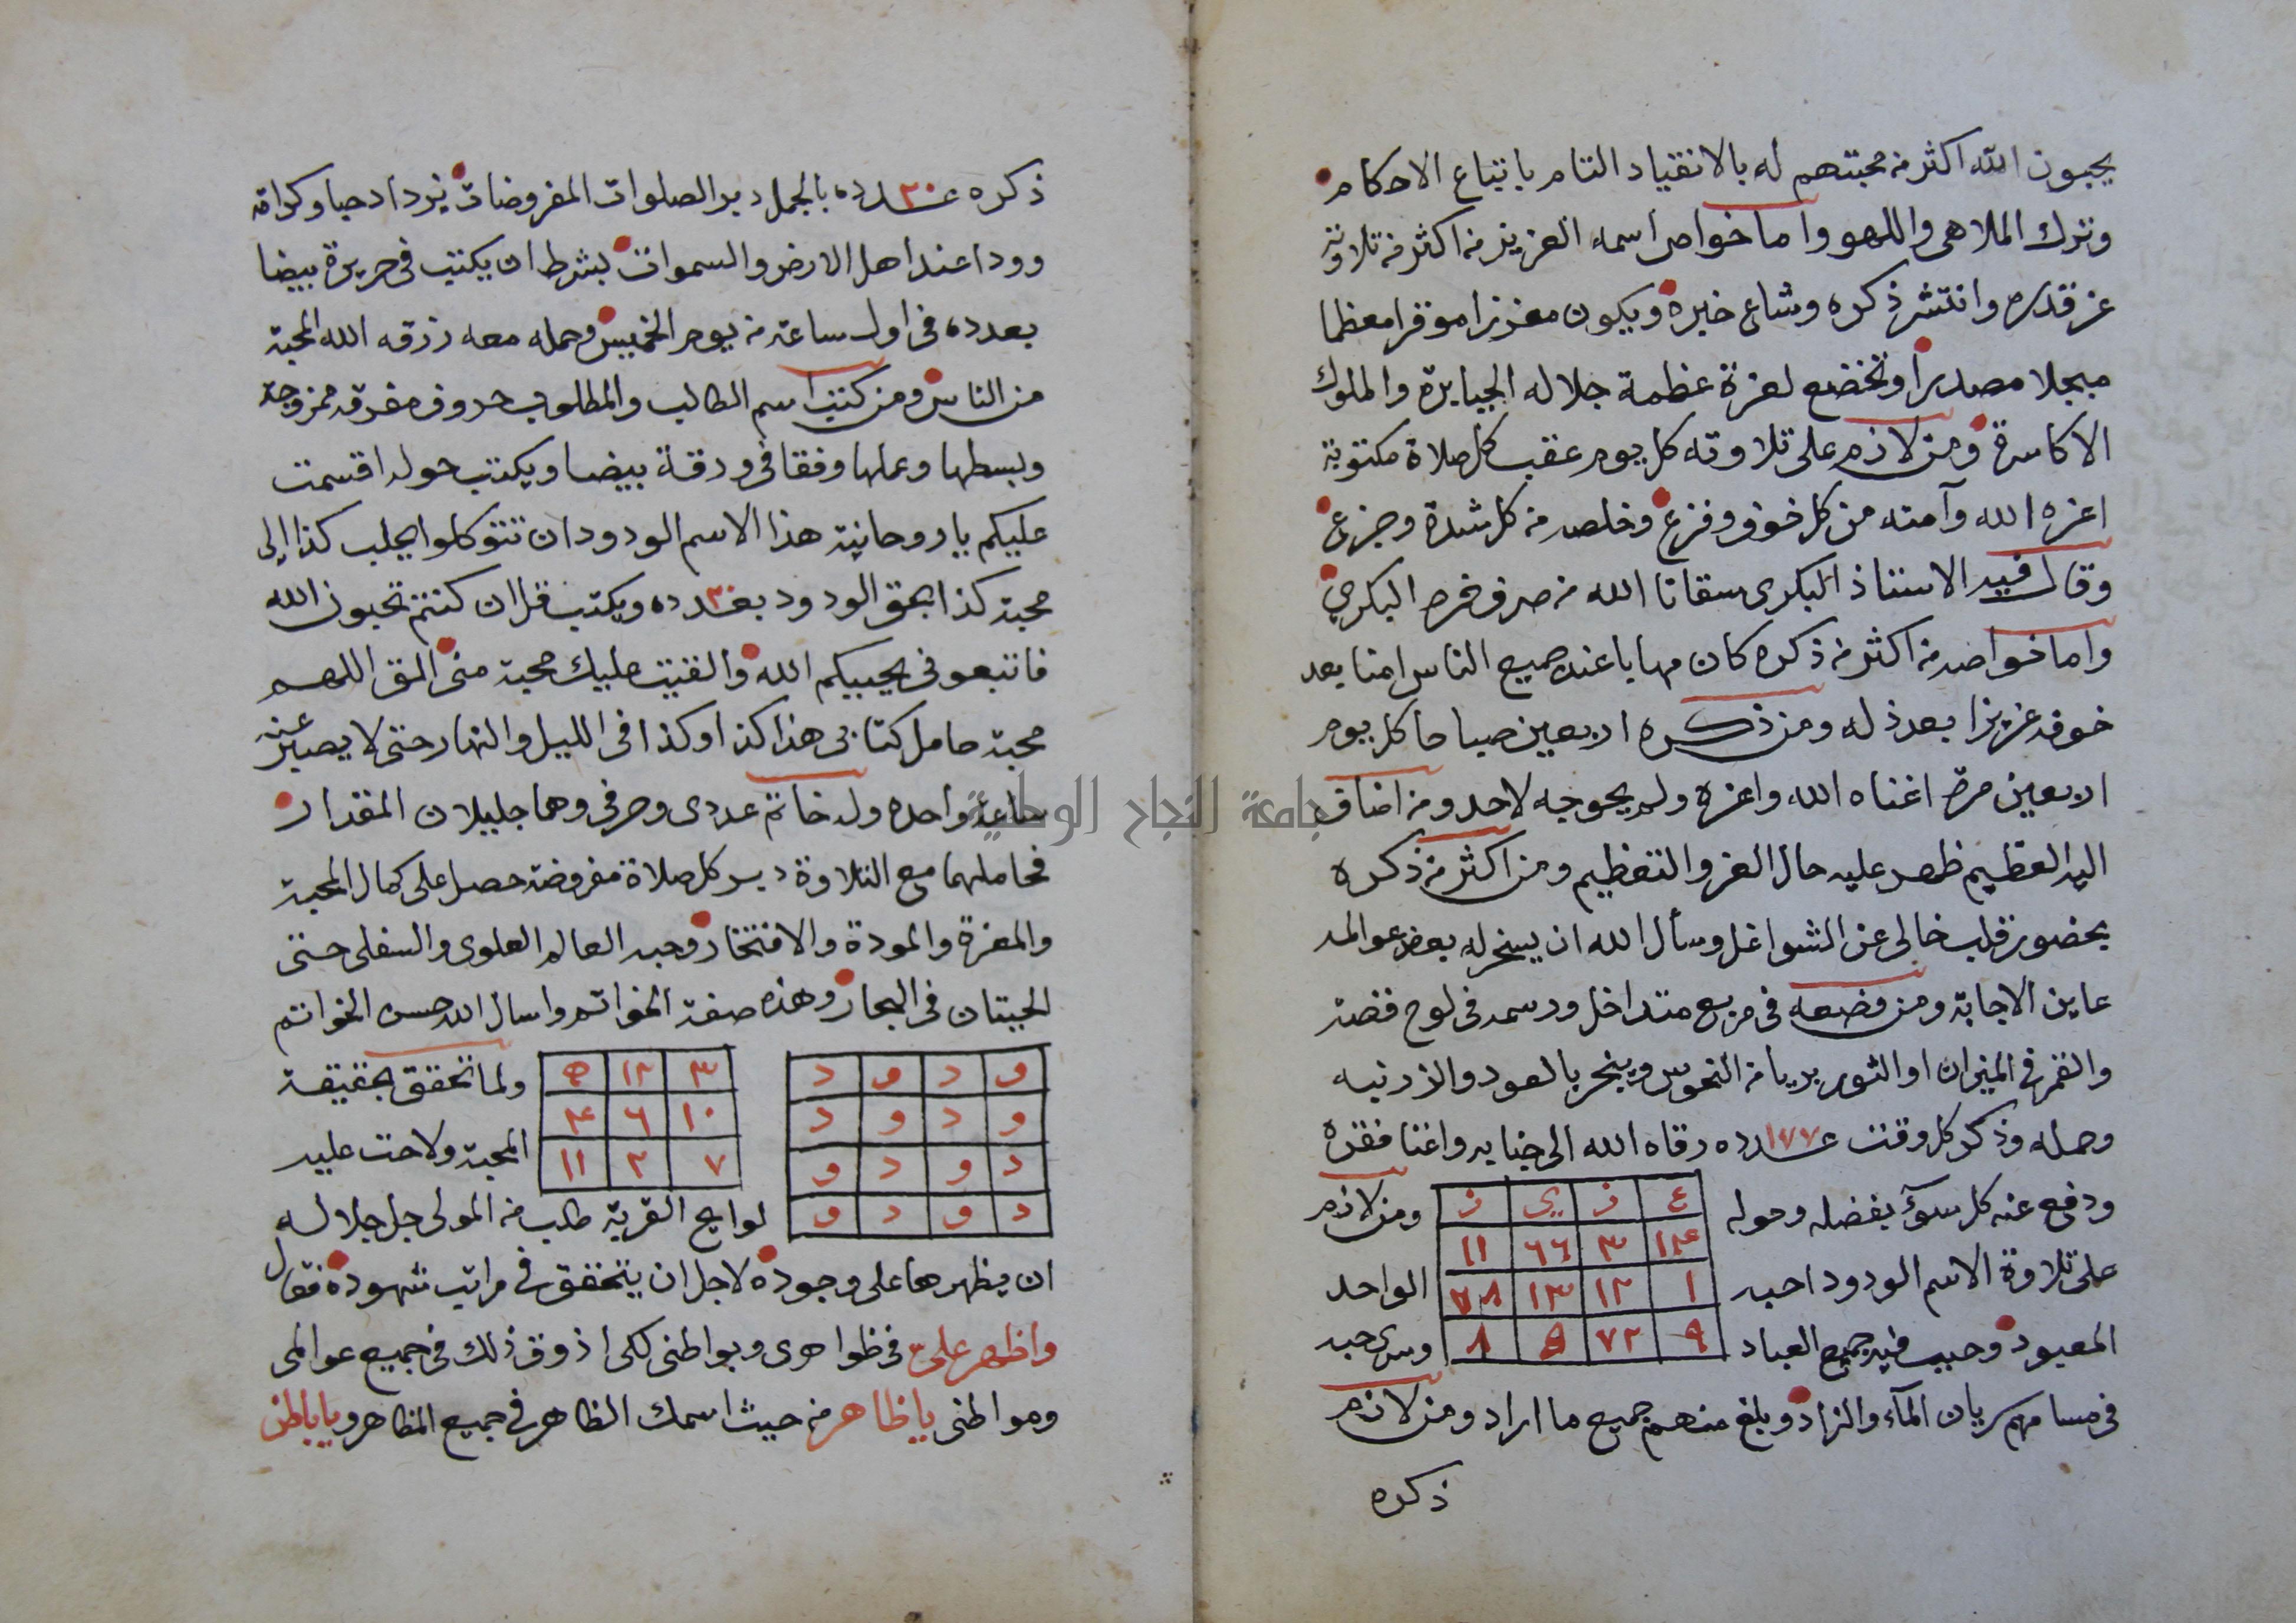 يحبون الله اكثر من محبتهم له بالانقياد التام باتباع الاحكام
وترك الملاهى واللهو واما خواص اسمه العزيز من اكثر من تلاوته
عز قدره وانتشر ذكره وشاع خبره ويكون معززا موقرا معظما
مبجلا مصدرا وتخضع لعزة عظمة جلاله الجبابرة والملوك
الاكاسرة ومن لازم على تلاوته كل يوم عقب كل صلاة مكتوبة
اعزه الله وآمنه من كل خوف وفزع وخلصه من كل شدة وجزع
وقال فيه الاستاذ البكرى سقانا الله من صرف خمره البكري
واما خواصه من اكثر من ذكره كان مهابا عند جميع الناس امنا بعد
خوفه عزيزا بعد ذله ومن ذكره اربعين صباحا كل يوم
اربعين مرة اغناه الله واعزه ولم يحوجه لاحد ومن اضاف
اليه العظيم ظهر عليه حال العز والتعظيم ومن اكثر من ذكره
بحضور قلب خالى عن الشواغل وسأل الله ان يسخر له بعض عوالمه
عاين الاجابة ومن وضعه فى مربع متداخل ورسمه فى لوح فضة
والقمر فى الميزان او الثور بريا من النحوس ويبخر بالعود والزرنبه
وحمله وذكر كل وقت عدده ١٧٧ رقاه الله الى جنابه واغنا فقره
ودفع عنه كل سوٓء بفضله وحوله ومن لازم
على تلاوة الاسم الودود احبه الواحد
المعبود وحبب فيه جميع العباد وسرى حبه
ع ز ي ز
١١٤ ٣ ٦٦ ١١
١ ١٢ ١٣ ٧٨
٩ ٧٢ ٥ ٨
فى مسامهم سريان المآء والزاد وبلغ منهم جميع ما اراد ومن لازم
ذكره
ذكره عدده ٢٠ بالجمل دبر الصلوات المفروضات يزداد حبا وكرامة
وودا عند اهل الارض والسموات بشرط ان يكتب فى حريرة بيضا
بعدده فى اول ساعة من يوم الخميس وحمله معه رزقه الله المحبة
من الناس ومن كتب اسم الطالب والمطلوب حروف مفرقه ممزوجة
وبسطها وعملها وفقا فى ورقة بيضا ويكتب حوله اقسمت
عليكم يا روحانية هذا الاسم الودود ان تتوكلوا بجلب كذا إلى
محبة كذا بحق الودود بعدده ٢٠ ويكتب قل ان كنتم تحبون الله
فاتبعونى يحببكم الله والقيت عليك محبة منى الق اللهم
محبة حامل كتابى هذا كذا وكذا فى الليل والنهار حتى لا يصبر عنه
ساعة واحده وله خاتم عددى وحرفى وهما جليلان المقدار
فحاملهما مع التلاوة دبر كل صلاة مفروضة حصل على كمال المحبة
والمعزة والمودة والافتخار وحبه العالم العلوى والسفلى حتى
الحيتان فى البحار وهذه صفة الخواتم واسال الله حسن الخواتم
و د و د
و د و د
د و د و
د و د و
٣ ١٢ ٥
١٠ ٦ ٤
٧ ٢ ١١
ولما تحقق بحقيقة
المحبة ولاحت عليه
لوايح القربة طلب من المولى جل جلاله
ان يظهرها على وجوده لاجل ان يتحقق فى مراتب شهوده فقال
واظهر علىّ فى ظواهرى وبواطنى لكى اذوق ذلك فى جميع عوالمى
ومواطنى يا ظاهر من حيث اسمك الظاهر فى جميع المظاهر ويا باطن
جامعة النجاح الوطنية